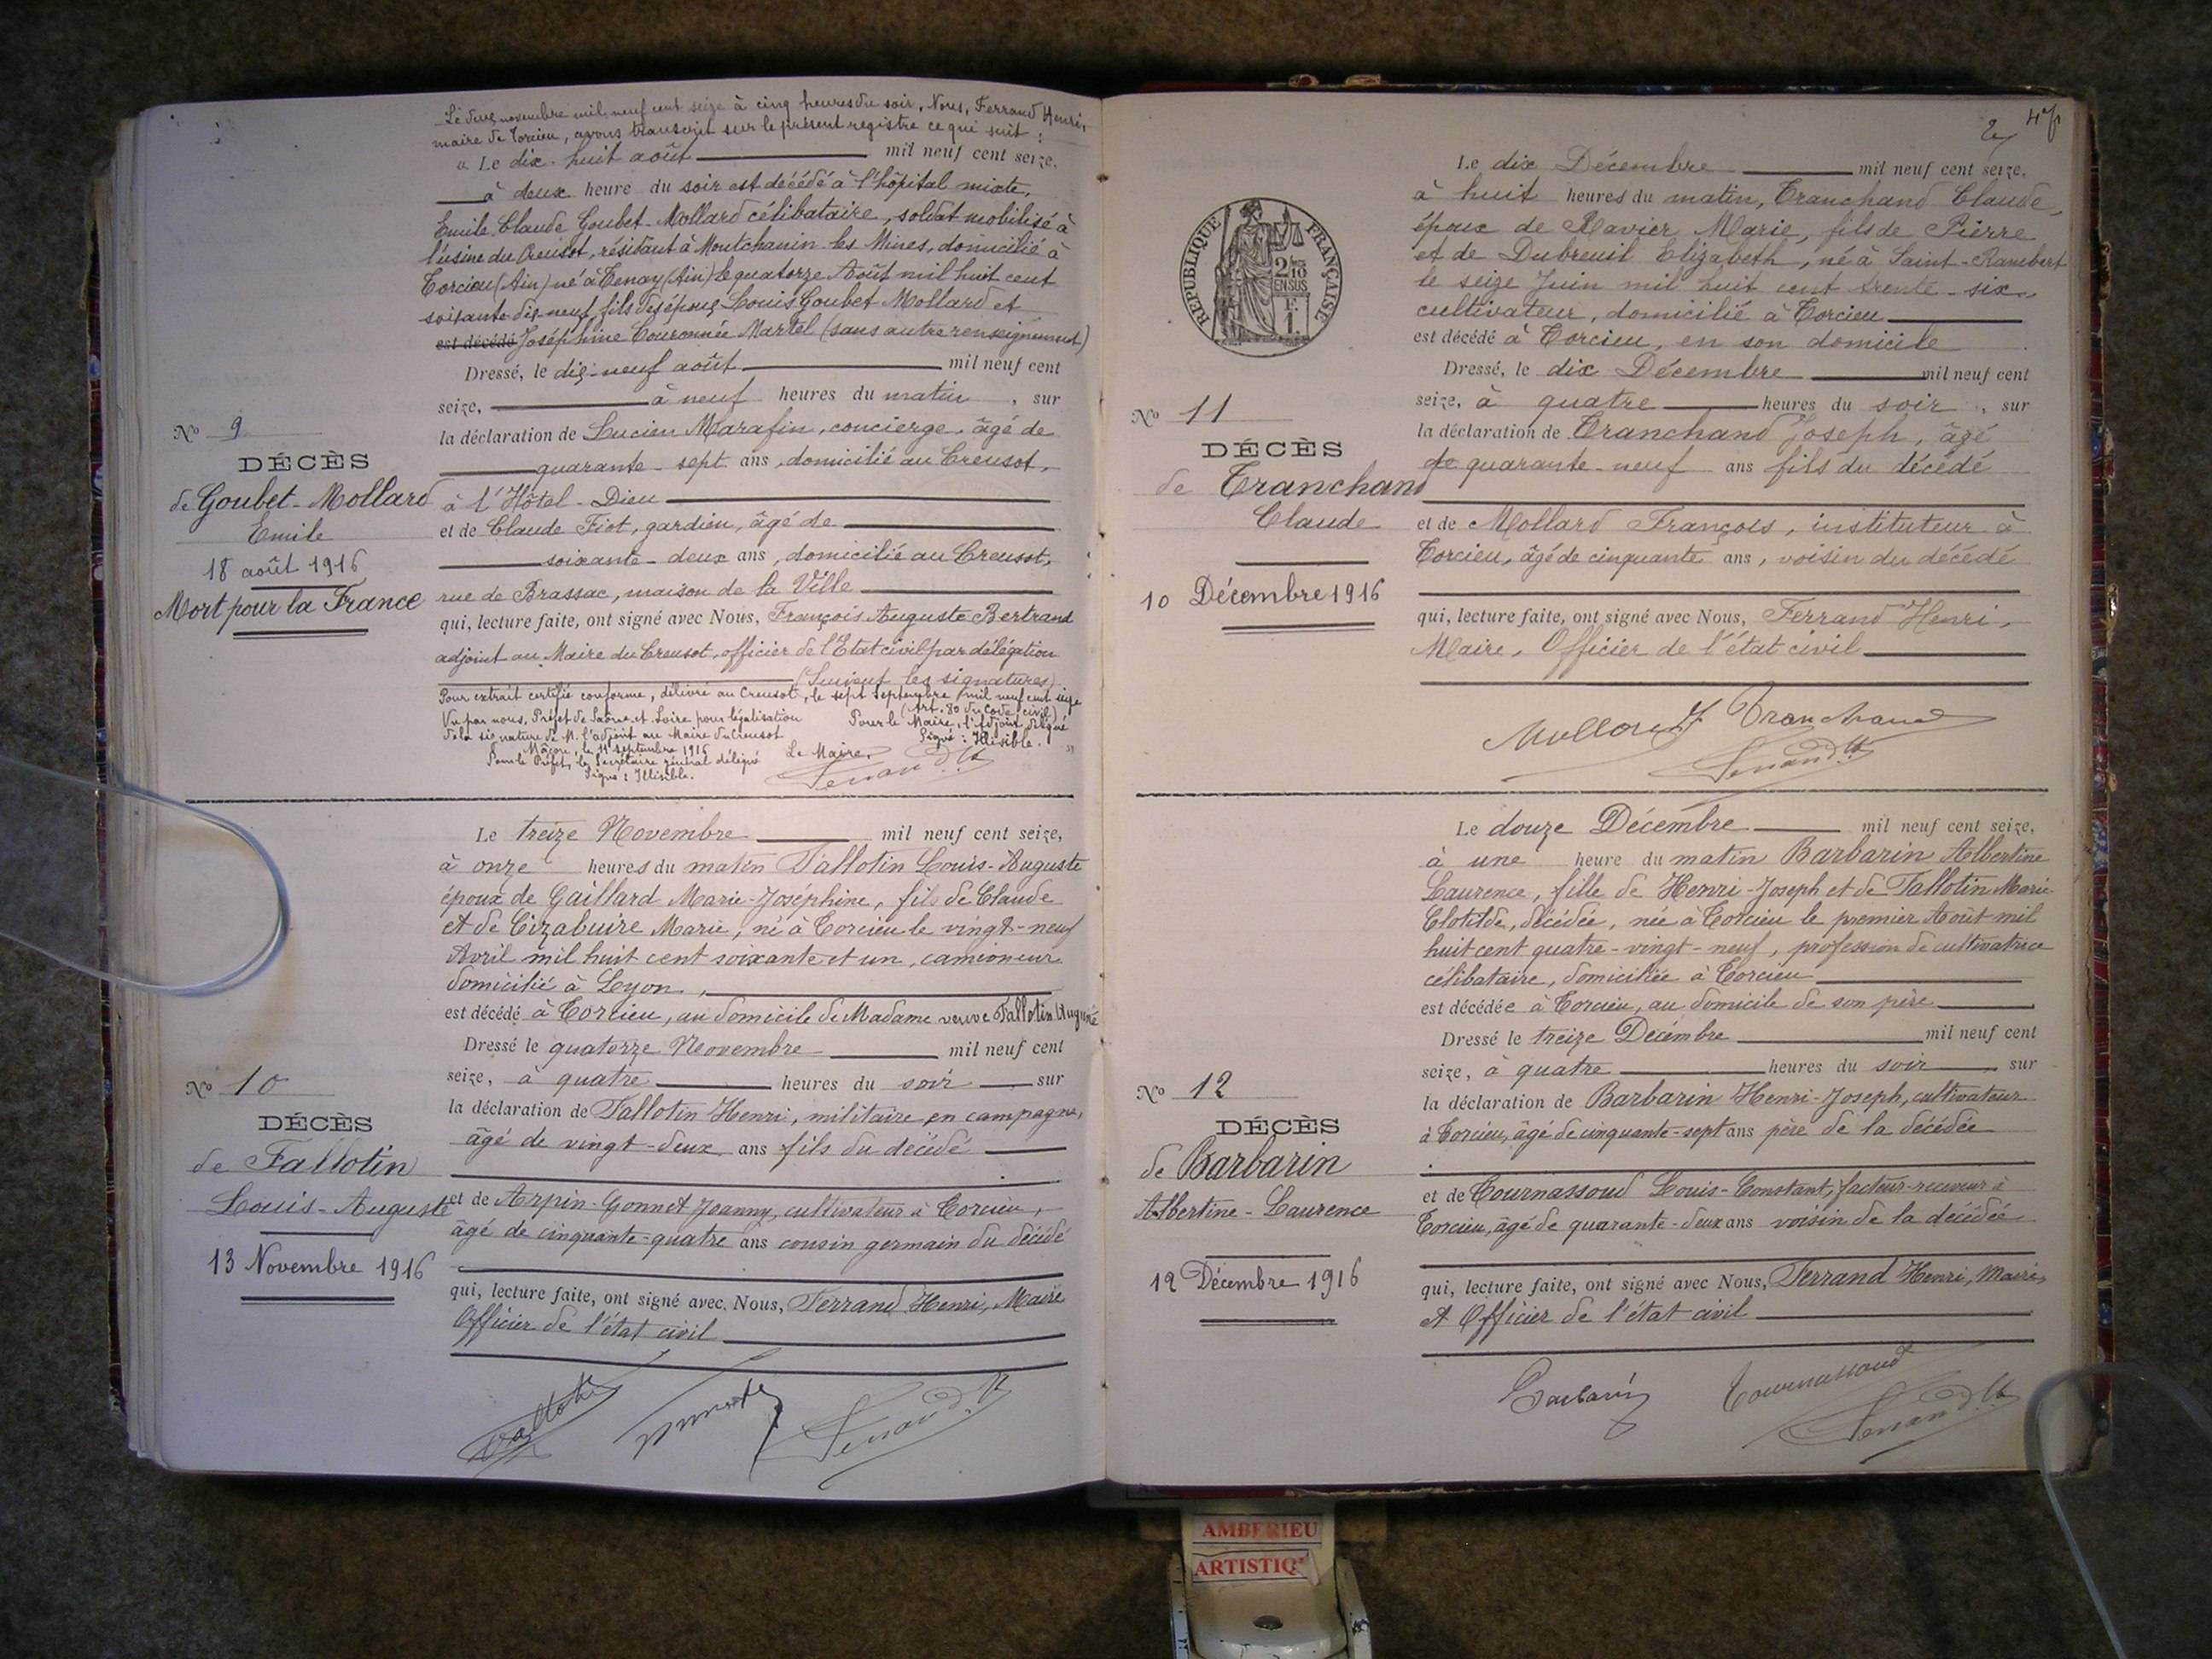 Le deux novembre mil neuf cent seize à cinq heures du soir, Nous, Ferrand Henri,
maire de Torcieu, avons transcrit sur le présent registre ce qui suit :
Le dix-huit août mil neuf cent seize,
à deux heure du soir est décédé à l'hôpital mixte,
Emile Claude Goubet-Mollard célibataire, soldat mobilisé à
l'usine du Creusot, résidant à Montchanin-les-Mines, domicilié à
Torcieu (Ain) né à Tenay (Ain) le quatorze Août mil huit cent
soixante-dix-neuf, fils des époux Louis Goubet-Mollard et
est décédé Joséphine Couronnée Martel (sans autre renseignement)
Dressé, le dix-neuf août mil neuf cent
seize, à neuf heures du matin, sur
la déclaration de Lucien Marafin, concierge, âgé de
quarante-sept ans, domicilié au Creusot,
à l'Hôtel-Dieu
et de Claude Fiot, gardien, âgé de
soixante-deux ans, domicilié au Creusot,
rue de Brassac, maison de la Ville
qui, lecture faite, ont signé avec Nous, François Auguste Bertrand
adjoint au Maire du Creusot, officier de l'Etat civil par délégation
(Suivent les signatures)
Pour extrait certifié conforme, délivré au Creusot, le sept septembre mil neuf cent seize
(Art. 80 du Code civil)
Vu par nous, Préfet de Saône-et-Loire pour légalisation
Pour le Maire, l'Adjoint délégué
de la signature de M. l'adjoint au Maire du Creusot
Signé : Illisible.
Mâcon, le 11 septembre 1916
Pour le Préfet, le Secrétaire général délégué
Signé : Illisible.
Le Maire,
Ferrand H
No 9
DÉCÈS
de Goubet-Mollard
Emile
18 août 1916
Mort pour la France
Le treize Novembre mil neuf cent seize,
à onze heures du matin Fallotin Louis-Auguste
époux de Gaillard Marie-Joséphine, fils de Claude
et de Cizabuire Marie, né à Torcieu le vingt-neuf
Avril mil huit cent soixante et un, camioneur
domicilié à Lyon,
est décédé à Torcieu, au domicile de Madame veuve Fallotin
Dressé le quatorze Novembre mil neuf cent
seize, à quatre heures du soir sur
la déclaration de Fallotin Henri, militaire en campagne,
âgé de vingt-deux ans fils du décédé
et de Arpin-Gonnet Joanny, cultivateur à Torcieu,
âgé de cinquante-quatre ans cousin germain du décédé
qui, lecture faite, ont signé avec Nous, Ferrand Henri, Maire
Officier de l'état civil
Ferrand H
No 10
DÉCÈS
de Fallotin
Louis-Auguste
13 Novembre 1916
47
Le dix Décembre mil neuf cent seize,
à huit heures du matin, Tranchand Claude,
époux de Ravier Marie, fils de Pierre
et de Dubreuil Elizabeth, né à Saint-Rambert
le seize Juin mil huit cent trente-six,
cultivateur, domicilié à Torcieu
est décédé à Torcieu, en son domicile
Dressé, le dix Décembre mil neuf cent
seize, à quatre heures du soir, sur
la déclaration de Tranchand Joseph, âgé
de quarante-neuf ans fils du décédé
et de Mollard François, instituteur à
Torcieu, âgé de cinquante ans, voisin du décédé
qui, lecture faite, ont signé avec Nous, Ferrand Henri,
Maire, Officier de l'état civil
Mollard J. Tranchand
Ferrand H
RÉPUBLIQUE FRANÇAISE
2/10 EN SUS
F. 1.
No 11
DÉCÈS
de Tranchand
Claude
10 Décembre 1916
Le douze Décembre mil neuf cent seize,
à une heure du matin Barbarin Albertine
Laurence, fille de Henri-Joseph et de Fallotin Marie
Clotilde, décédée, née à Torcieu le premier Août mil
huit cent quatre-vingt-neuf, profession de cultivatrice
célibataire, domiciliée à Torcieu
est décédée à Torcieu, au domicile de son père
Dressé le treize Décembre mil neuf cent
seize, à quatre heures du soir sur
la déclaration de Barbarin Henri-Joseph, cultivateur
à Torcieu, âgé de cinquante-sept ans père de la décédée
et de Tournassoud Louis-Constant, facteur-receveur à
Torcieu, âgé de quarante-deux ans voisin de la décédée
qui, lecture faite, ont signé avec Nous, Ferrand Henri, Maire,
et Officier de l'état civil
Barbarin Tournassoud
Ferrand H
No 12
DÉCÈS
de Barbarin
Albertine-Laurence
12 Décembre 1916
AMBERIEU
ARTISTIQ